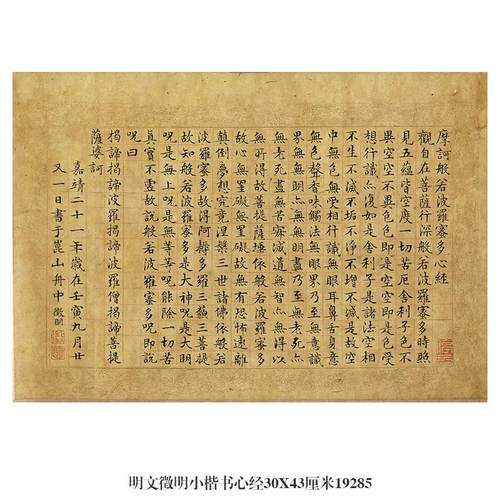 摩訶般若波羅蜜多心經
觀自在菩薩行深般若波羅蜜多時照
見五蘊皆空度一切苦厄舍利子色不
異空空不異色色即是空空即是色受
想行識亦復如是舍利子是諸法空相
不生不滅不垢不淨不增不減是故空
中無色無受想行識無眼耳鼻舌身意
無色聲香味觸法無眼界乃至無意識
界無無明亦無無明盡乃至無老死亦
無老死盡無苦集滅道無智亦無得以
無所得故菩提薩埵依般若波羅蜜多
故心無罣礙無罣礙故無有恐怖遠離
顛倒夢想究竟涅槃三世諸佛依般若
波羅蜜多故得阿耨多羅三藐三菩提
故知般若波羅蜜多是大神呪是大明
呪是無上呪是無等等呪能除一切苦
真實不虛故說般若波羅蜜多呪即說
呪曰
揭諦揭諦波羅揭諦波羅僧揭諦菩提
薩婆訶
嘉靖二十一年歲在壬寅九月廿
又一日書于崑山舟中 徵明
明文徵明小楷书心经30X43厘米19285